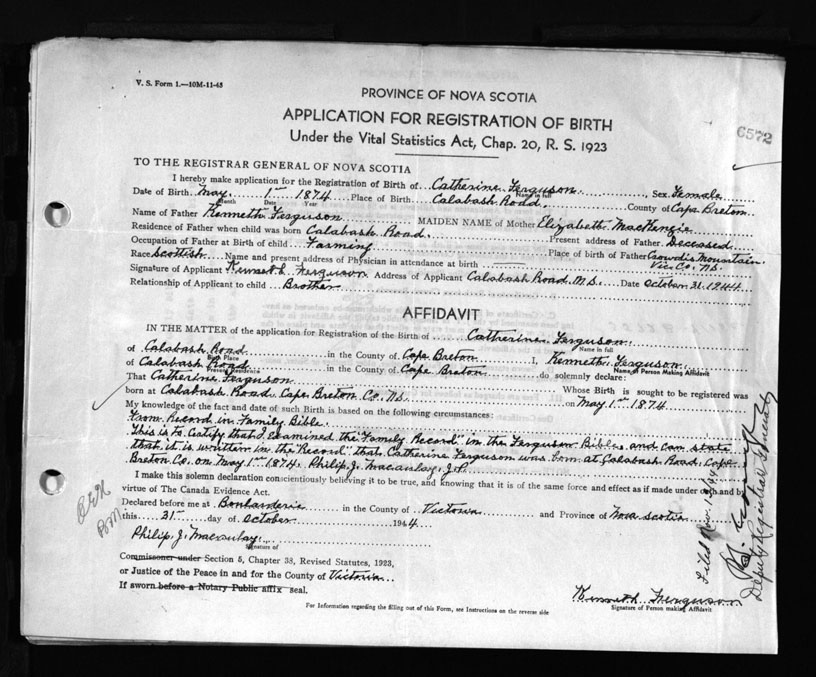 V. S. Form 1.—10M-11-43
PROVINCE OF NOVA SCOTIA
APPLICATION FOR REGISTRATION OF BIRTH
Under the Vital Statistics Act, Chap. 20, R. S. 1923
6572
TO THE REGISTRAR GENERAL OF NOVA SCOTIA
I hereby make application for the Registration of Birth of Catherine Ferguson Sex Female
Name in full
Date of Birth May 1st 1874 Place of Birth Calabash Road County of Cape Breton
Month Date Year
Name of Father Kenneth Ferguson MAIDEN NAME of Mother Elizabeth MacKenzie
Residence of Father when child was born Calabash Road. Present address of Father Deceased
Occupation of Father at Birth of child Farming Place of birth of Father Crowdis Mountain
Race Scottish Name and present address of Physician in attendance at birth —— Vic. Co. N.S.
Signature of Applicant Kenneth Ferguson Address of Applicant Calabash Road. N.S. Date October 31. 1944
Relationship of Applicant to child Brother
AFFIDAVIT
IN THE MATTER of the application for Registration of the Birth of Catherine Ferguson
Name in full
of Calabash Road in the County of Cape Breton I, Kenneth Ferguson
Birth Place Name of Person Making Affidavit
of Calabash Road in the County of Cape Breton do solemnly declare:
Present Residence
That Catherine Ferguson Whose Birth is sought to be registered was
born at Calabash Road Cape Breton Co. N.S. on May 1st 1874.
My knowledge of the fact and date of such Birth is based on the following circumstances:
From Record in Family Bible.
This is to Certify that I examined the Family Record in the Ferguson Bible, and can state
that it is written in the Record that Catherine Ferguson was born at Calabash Road, Cape
Breton Co. on May 1st 1874. Philip J. Macaulay, J.P.
I make this solemn declaration conscientiously believing it to be true, and knowing that it is of the same force and effect as if made under oath and by
virtue of The Canada Evidence Act.
Declared before me at Boularderie in the County of Victoria and Province of Nova Scotia
this 31st day of October 1944
Philip J. Macaulay.
Signature of
Commissoner under Section 5, Chapter 38, Revised Statutes, 1923,
or Justice of the Peace in and for the County of Victoria
If sworn before a Notary Public affix seal.
Kenneth Ferguson
Signature of Person making Affidavit
For Information regarding the filling out of this Form, see Instructions on the reverse side
Filed Nov.
Deputy Registrar General